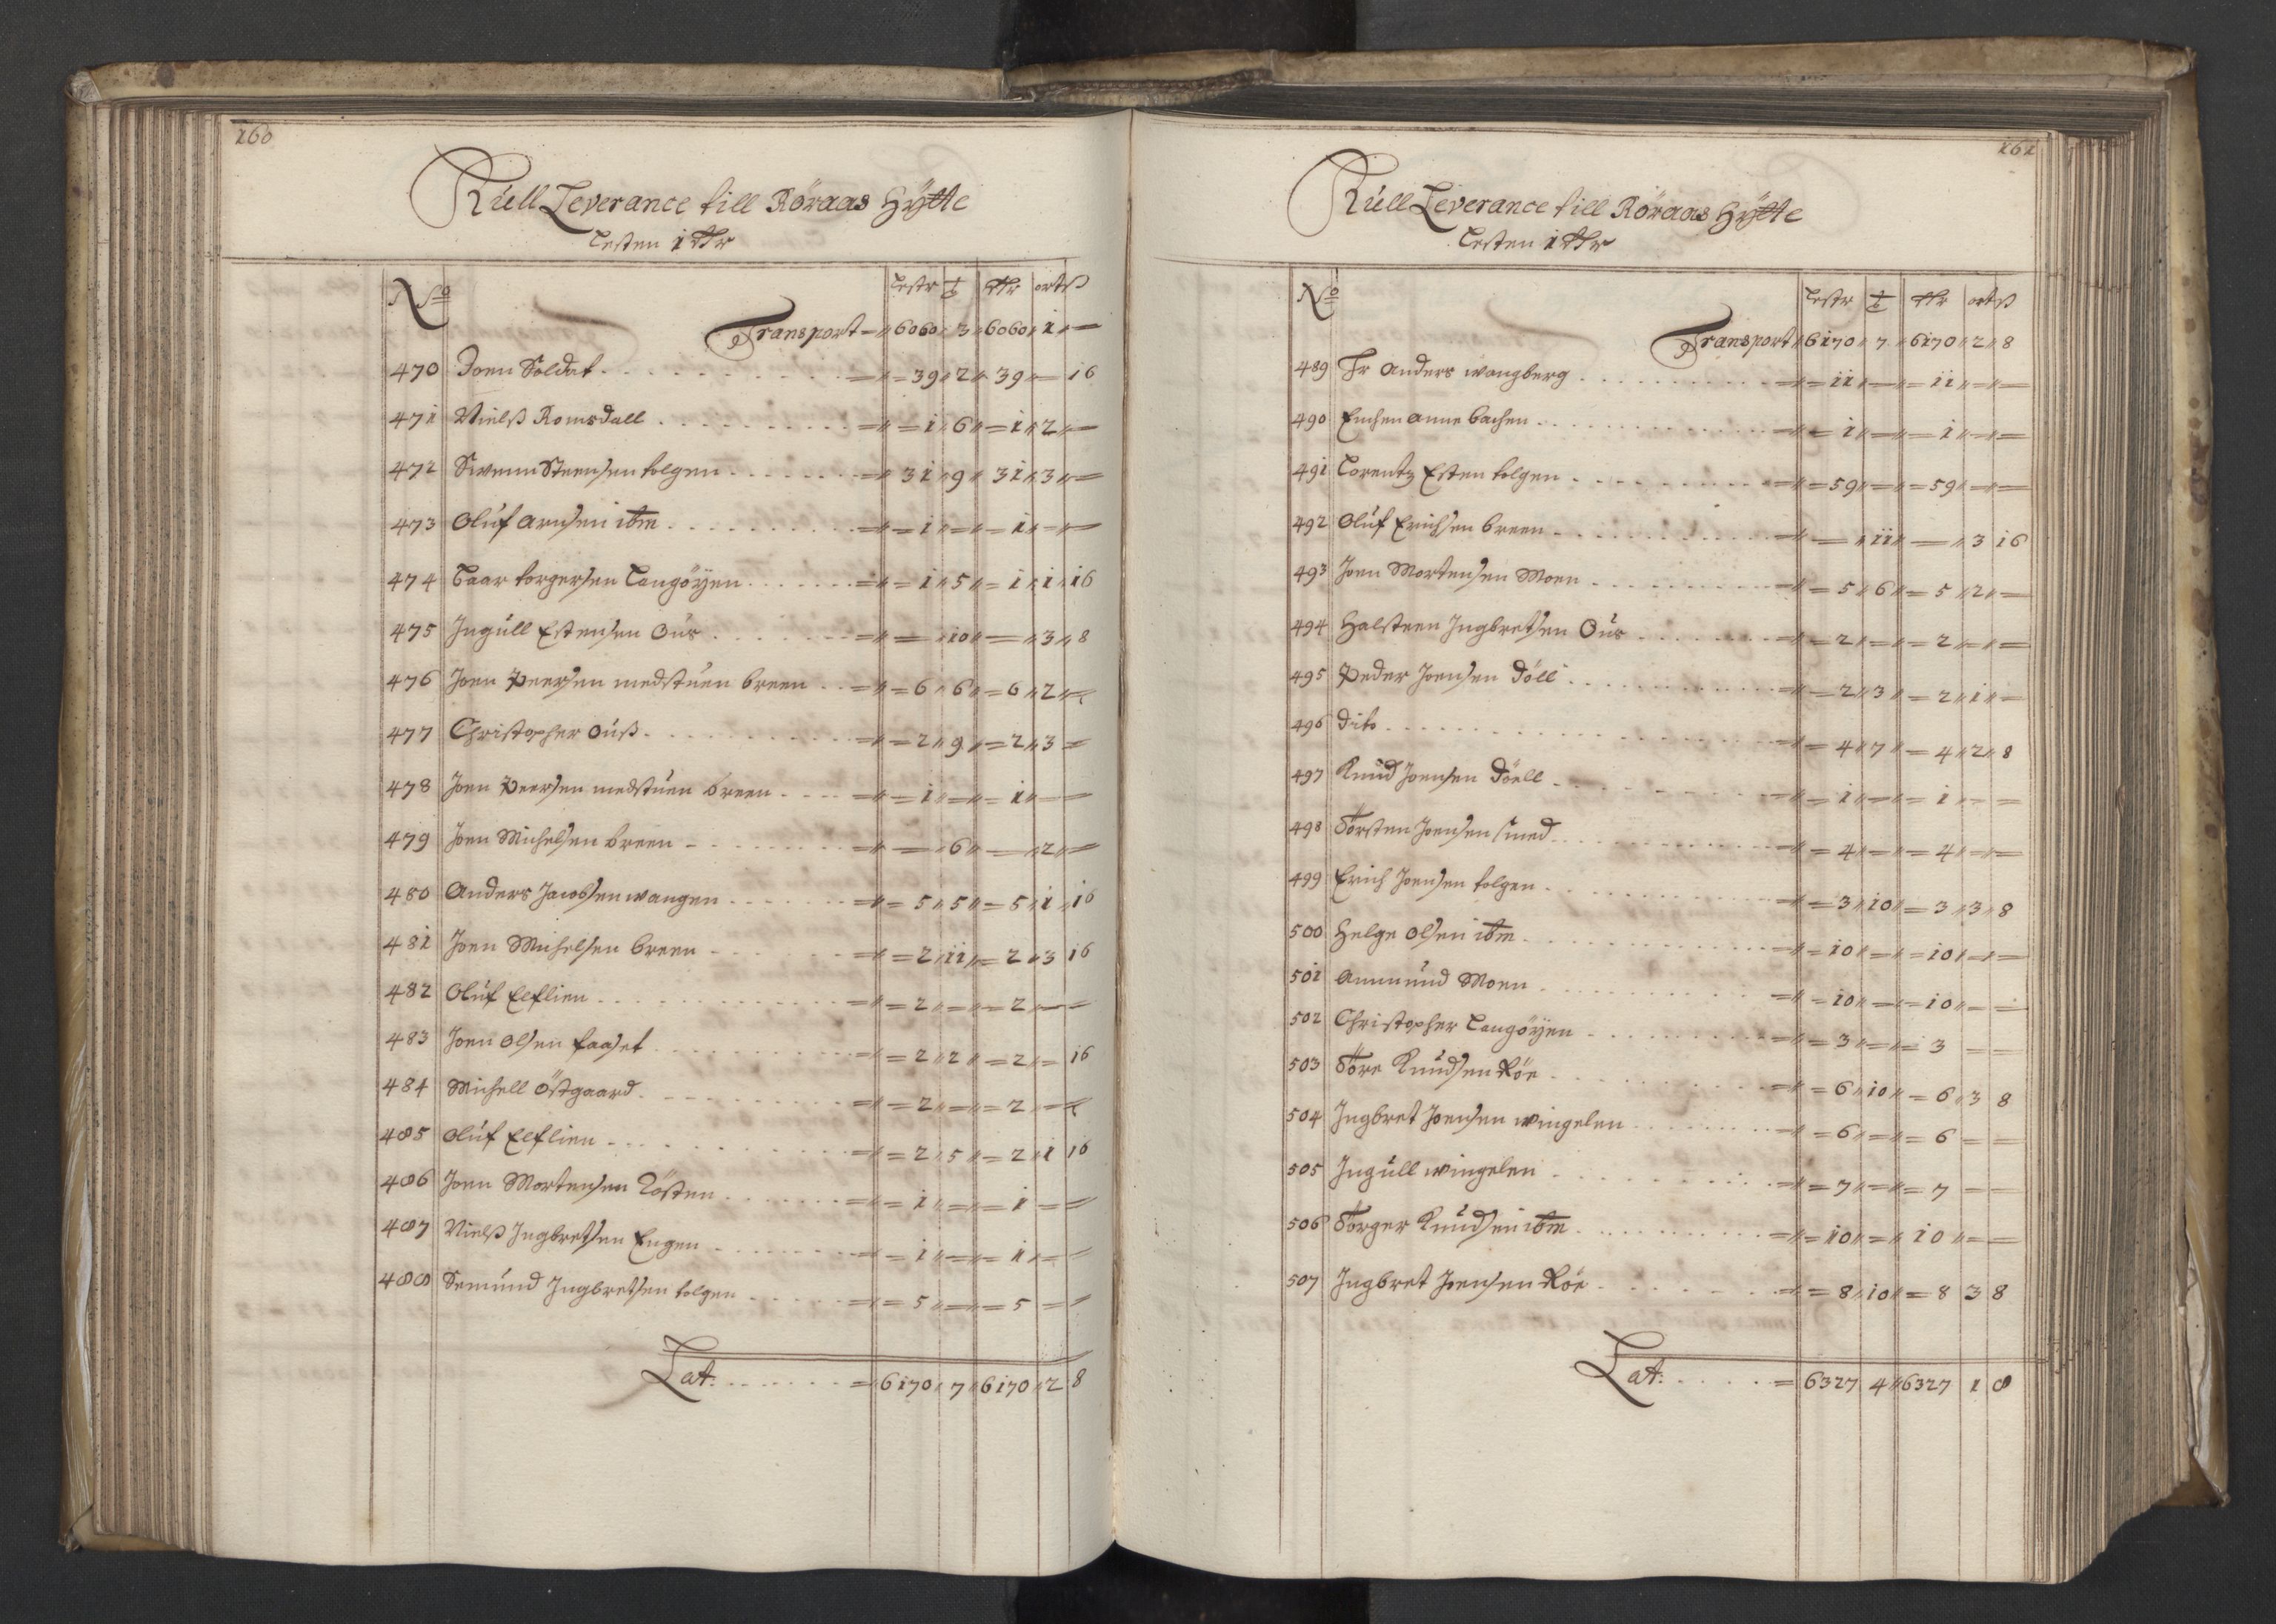 160
Kúll Leverance till Röraas Hÿtte
Lesten 1 Rdr
No Lestr t Rdr ort ß
Transport 6060 3 6060 1
470 Joen Soldat 39 2 39 16
471 Nielß Romsdall 1 6 1 2
472 Svenn Steensen tolgen 31 9 31 3
473 Olúf arnsen ibm 1 1
474 Baar torgersen Langöÿen 1 5 1 1 16
475 Ingúll Estensen Oús 10 3 8
476 Joen Peersen medstúen breen 6 6 6 2
477 Christopher oúß 2 9 2 3
478 Joen Peersen medstúen breen 1 1
479 Joen Michelsen breen 6 2
480 Anders Jacobsen wangen 5 5 5 1 16
481 Joen Michelsen breen 2 11 2 3 16
482 Olúf Elflien 2 2
483 Joen olsen faaset 2 2 2 16
484 Michell östgaard 2 2
485 olúf Elflien 2 5 2 1 16
486 Joen Mortensen Tösten 1 1
487 Nielß Ingbretsen Engen 1 1
488 Semúnd Ingbretsen tolgen 5 5
Lat: 6170 7 6170 2 8
161
Kúll Leverance till Röraas Hÿtte
Lesten 1 Rdr
No Lestr t Rdr ort ß
Transport 6170 7 6170 2 8
489 Hr Anders wangberg 11 11
490 Enchen anne bachen 1 1
491 Lorentz Esten tolgen 59 59
492 Olúf Erichsen breen 11 3 16
493 Joen Mortensen Moen 5 6 5 2
494 Halsteen Ingbretsen Oús 2 2
495 Peder Joensen döll 2 3 2 1
496 dito 4 7 4 2 8
497 Knúd Joensen döell 1 1
498 Torsten Joensen smed 4 4
499 Erich Joensen tolgen 3 10 3 3 8
500 Helge olsen ibm 10 10
501 Ammúnd Moen 10 10
502 Christopher Langöÿen 3 3
503 Töre Knúdsen Röe 6 10 6 3 8
504 Ingbret Joensen wingelen 6 6
505 Ingúll wingelen 7 7
506 Torger Knúdsen ibm 10 10
507 Ingbret Joensen Röe 8 10 8 3 8
Lat: 6327 4 6327 1 8